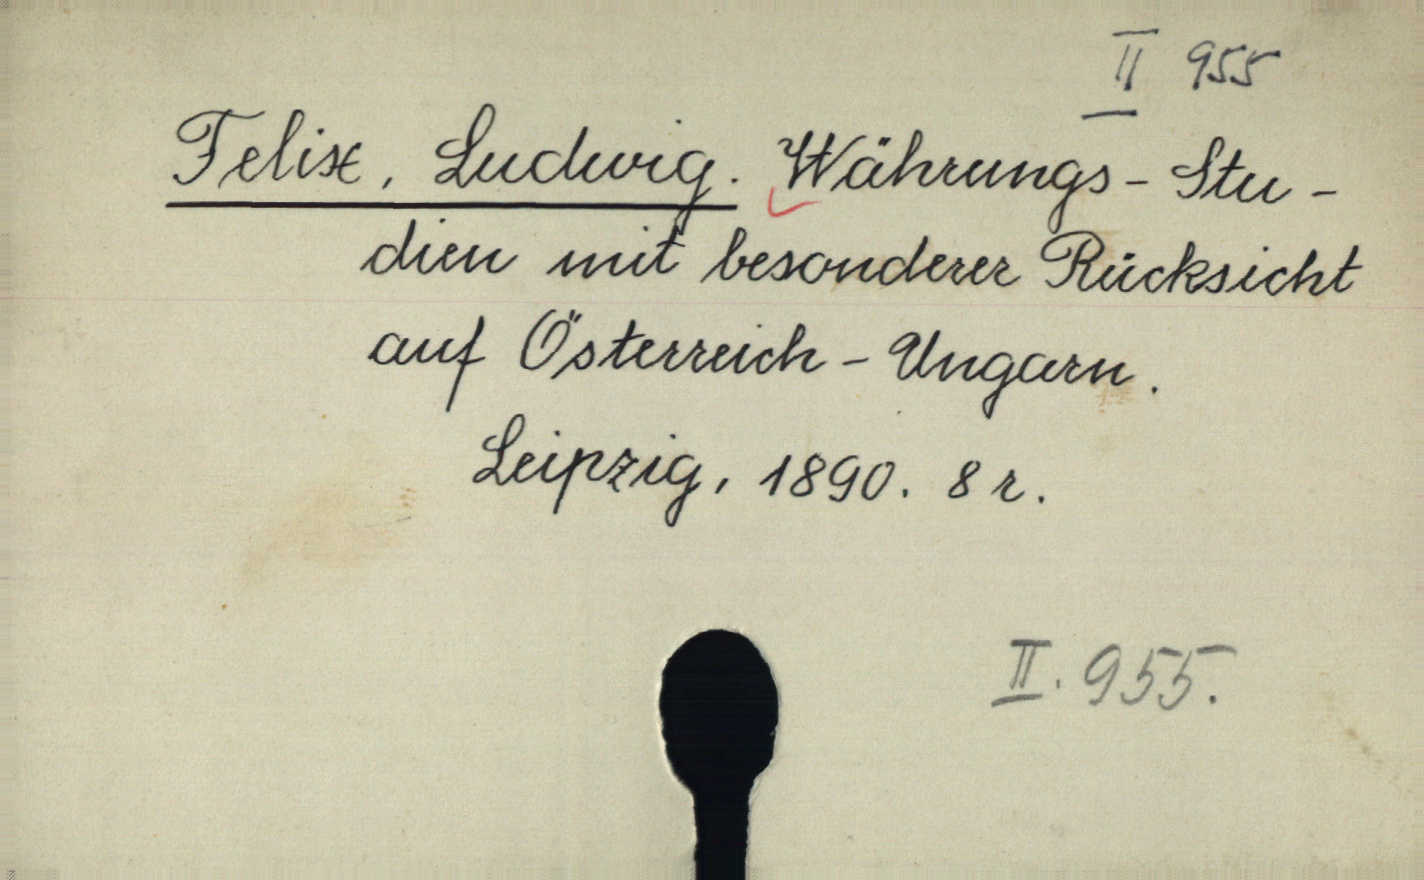 II 955
Felix, Ludwig. Währungs-Stu-
dien mit besonderer Rücksicht
auf Österreich-Ungarn.
Leipzig, 1890. 8 r.
II. 955.